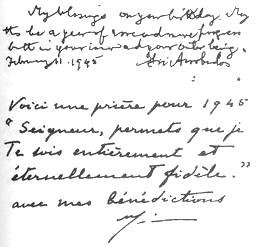 My blessings on your birthday. May
this be a year of advance and progress
both in your inner and your outer being.
February 11. 1945 Sri Aurobindo
Voici une prière pour 1945
"Seigneur, permets que je
Te sois entièrement et
éternellement fidèle."
avec mes bénédictions